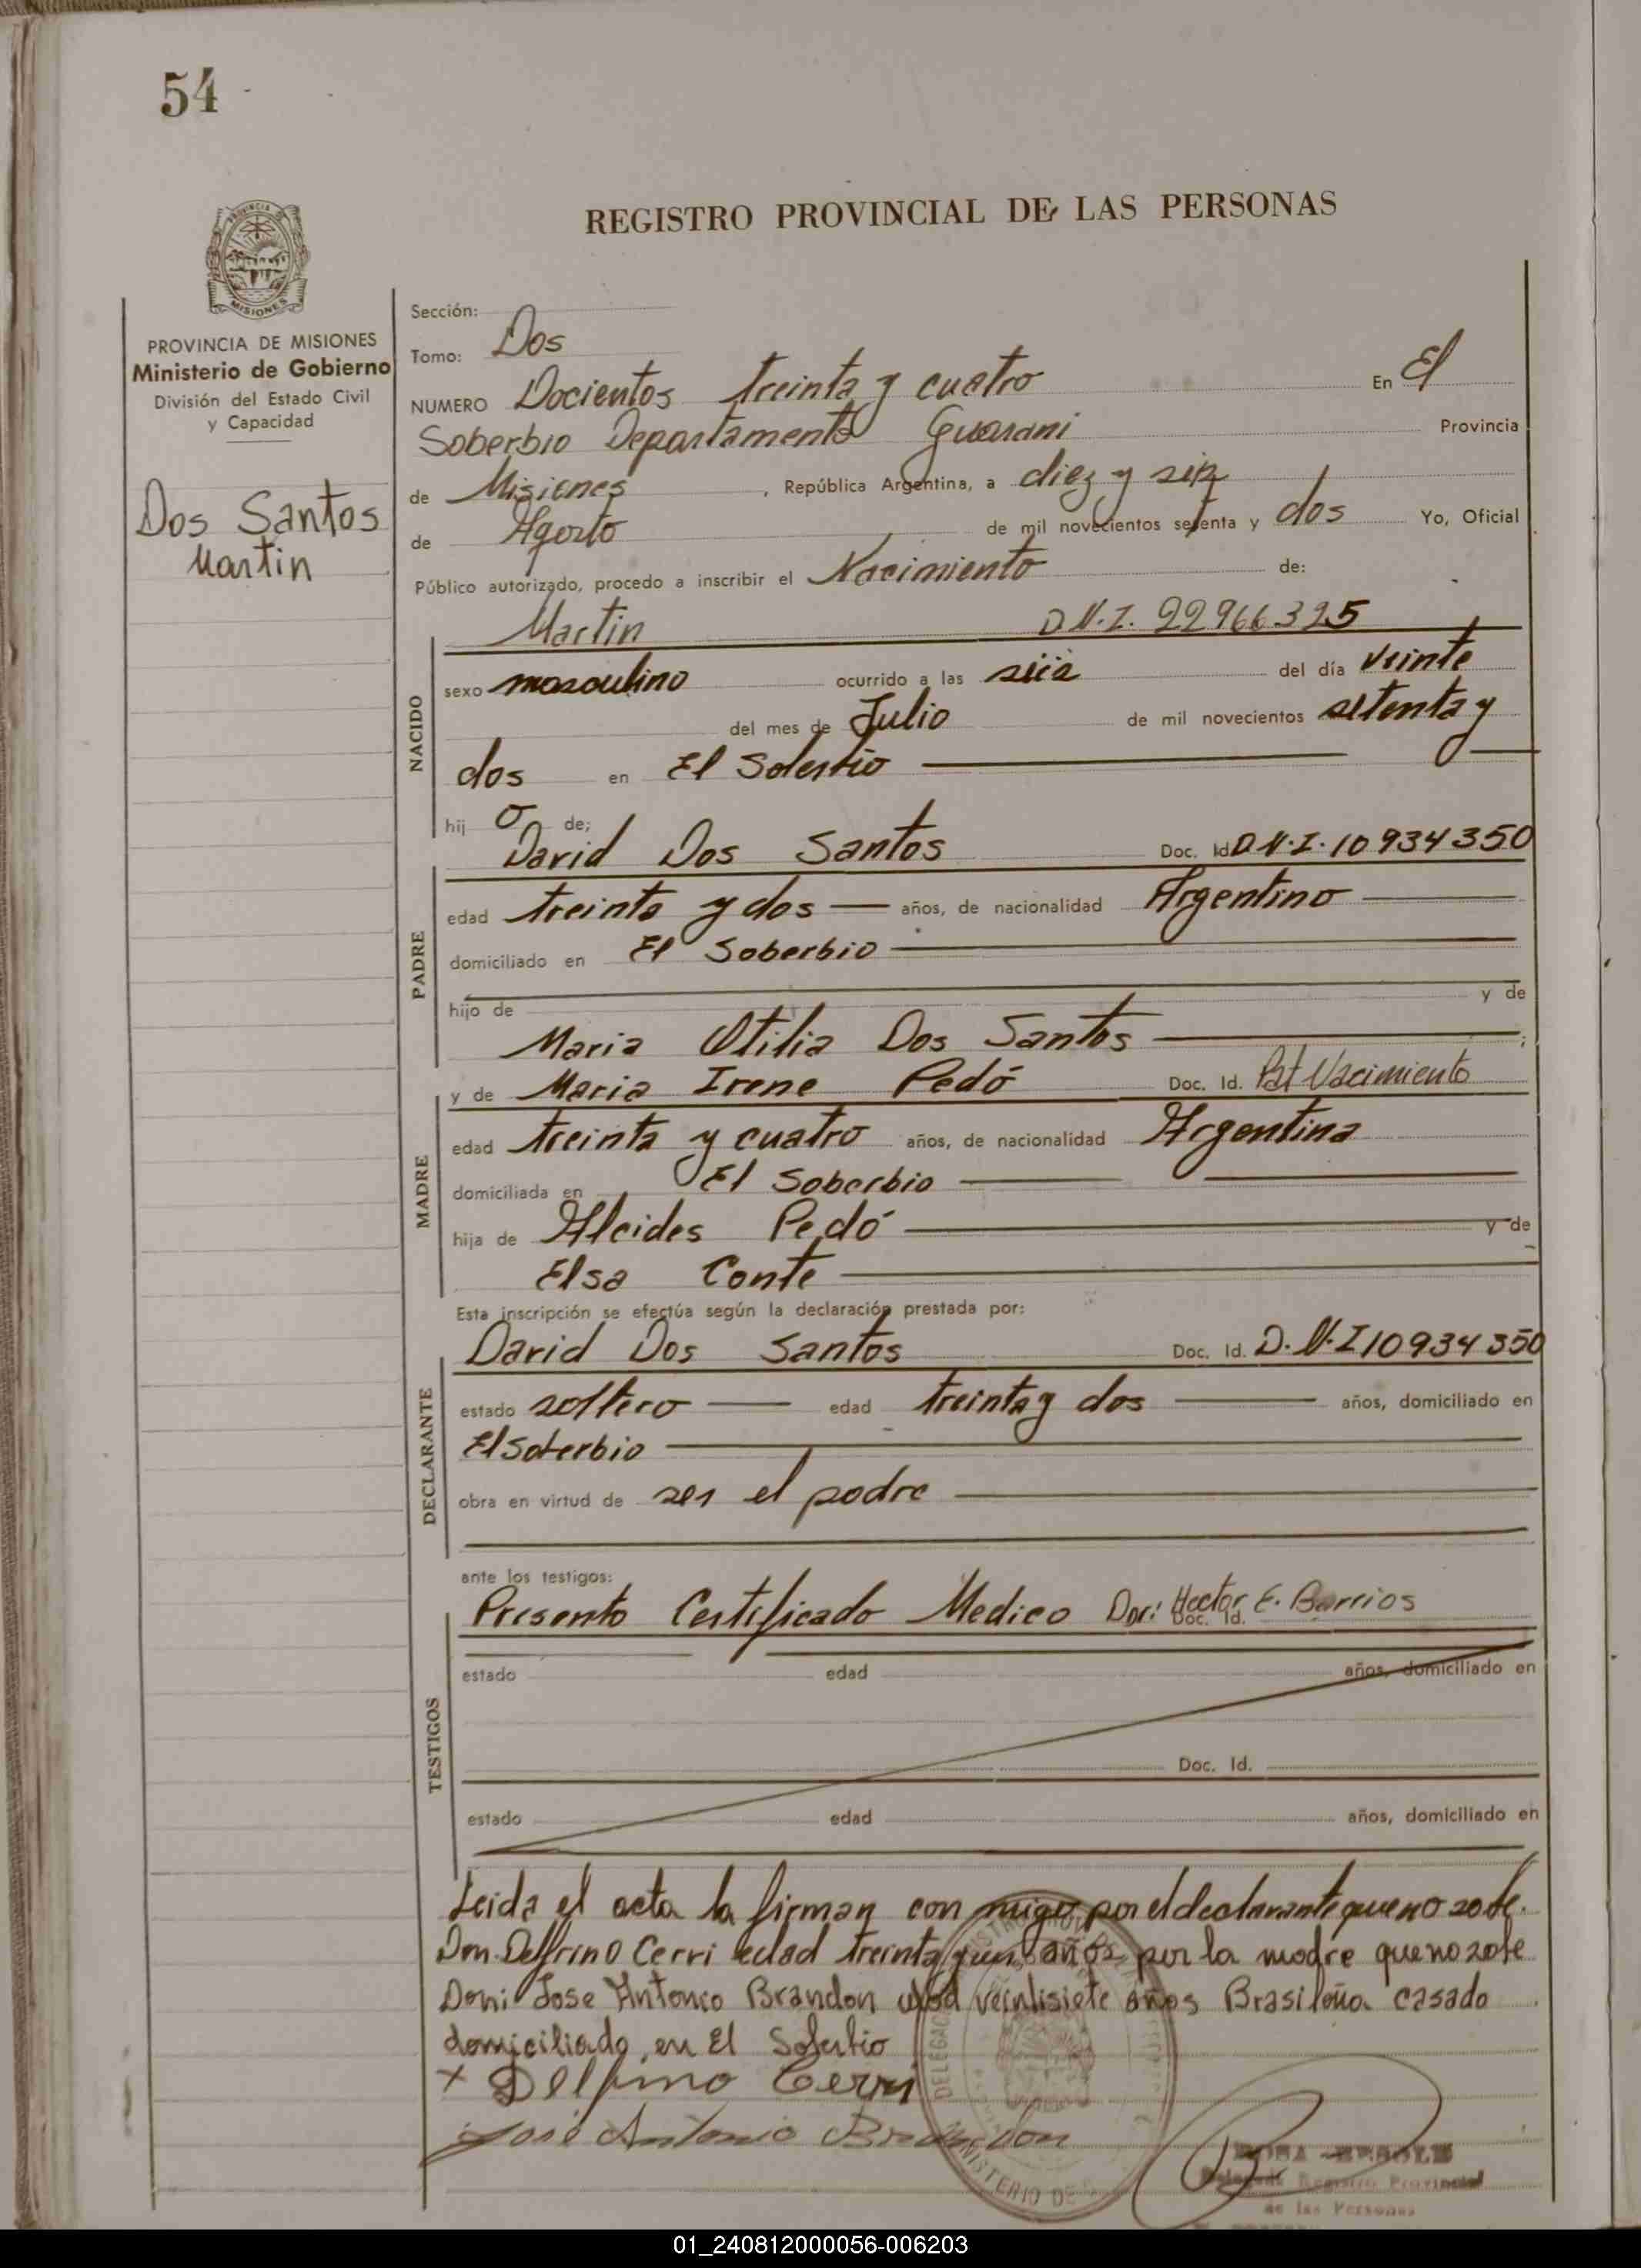 54
REGISTRO PROVINCIAL DE LAS PERSONAS
PROVINCIA DE
MISIONES
PROVINCIA DE MISIONES
Ministerio de Gobierno
División del Estado Civil
y Capacidad
Dos Santos
Martin
Sección:
Tomo: Dos
NUMERO Docientos treinta y cuatro En El
Soberbio Departamento Guarani Provincia
de Misiones, República Argentina, a diez y seiz
de Agosto de mil novecientos setenta y dos Yo, Oficial
Público autorizado, procedo a inscribir el Nacimiento de:
Martin D.N.I. 22966325
NACIDO
sexo masculino ocurrido a las seis del día veinte
del mes de Julio de mil novecientos setenta y
dos en El Soberbio
hij o de;
David Dos Santos Doc. Id D.N.I. 10934350
PADRE
edad treinta y dos años, de nacionalidad Argentino
domiciliado en El Soberbio
hijo de y de
Maria Otilia Dos Santos ;
y de Maria Irene Pedó Doc. Id. Pat Nacimiento
MADRE
edad treinta y cuatro años, de nacionalidad Argentina
domiciliada en El Soberbio
hija de Alcides Pedó y de
Elsa Conte
Esta inscripción se efectúa según la declaración prestada por:
David Dos Santos Doc. Id. D.N.I 10934350
DECLARANTE
estado soltero edad treinta y dos años, domiciliado en
El Soberbio
obra en virtud de ser el padre
ante los testigos:
Presento Certificado Medico Dor: Hector E. Barrios Doc. Id.
TESTIGOS
estado edad años, domiciliado en
Doc. Id.
estado edad años, domiciliado en
Leida el acta la firman con migo por el declarante que no sabe.
Don. Delfino Cerri edad treinta y un años por la madre que no sabe
Don: Jose Antonio Brandon edad veintisiete años Brasileño casado
domiciliado en El Soberbio
x Delfino Cerri
José Antonio Brandon
DELEGAC
MINISTERIO DE
Registro Provincial
de las Personas
01_240812000056-006203